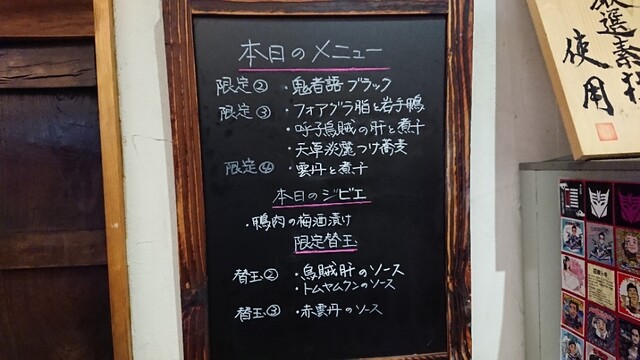 本日のメニュー
限定② ・鬼者語ブラック
限定③ ・フォアグラ脂と岩手鴨
・呼子烏賊の肝と煮干
・天草淡麗つけ蕎麦
限定④ ・雲丹と煮干
本日のジビエ
・鴨肉の梅酒漬け
限定替玉
替玉② ・烏賊肝のソース
・トムヤムクンのソース
替玉③ ・赤雲丹のソース
厳選素材
使用